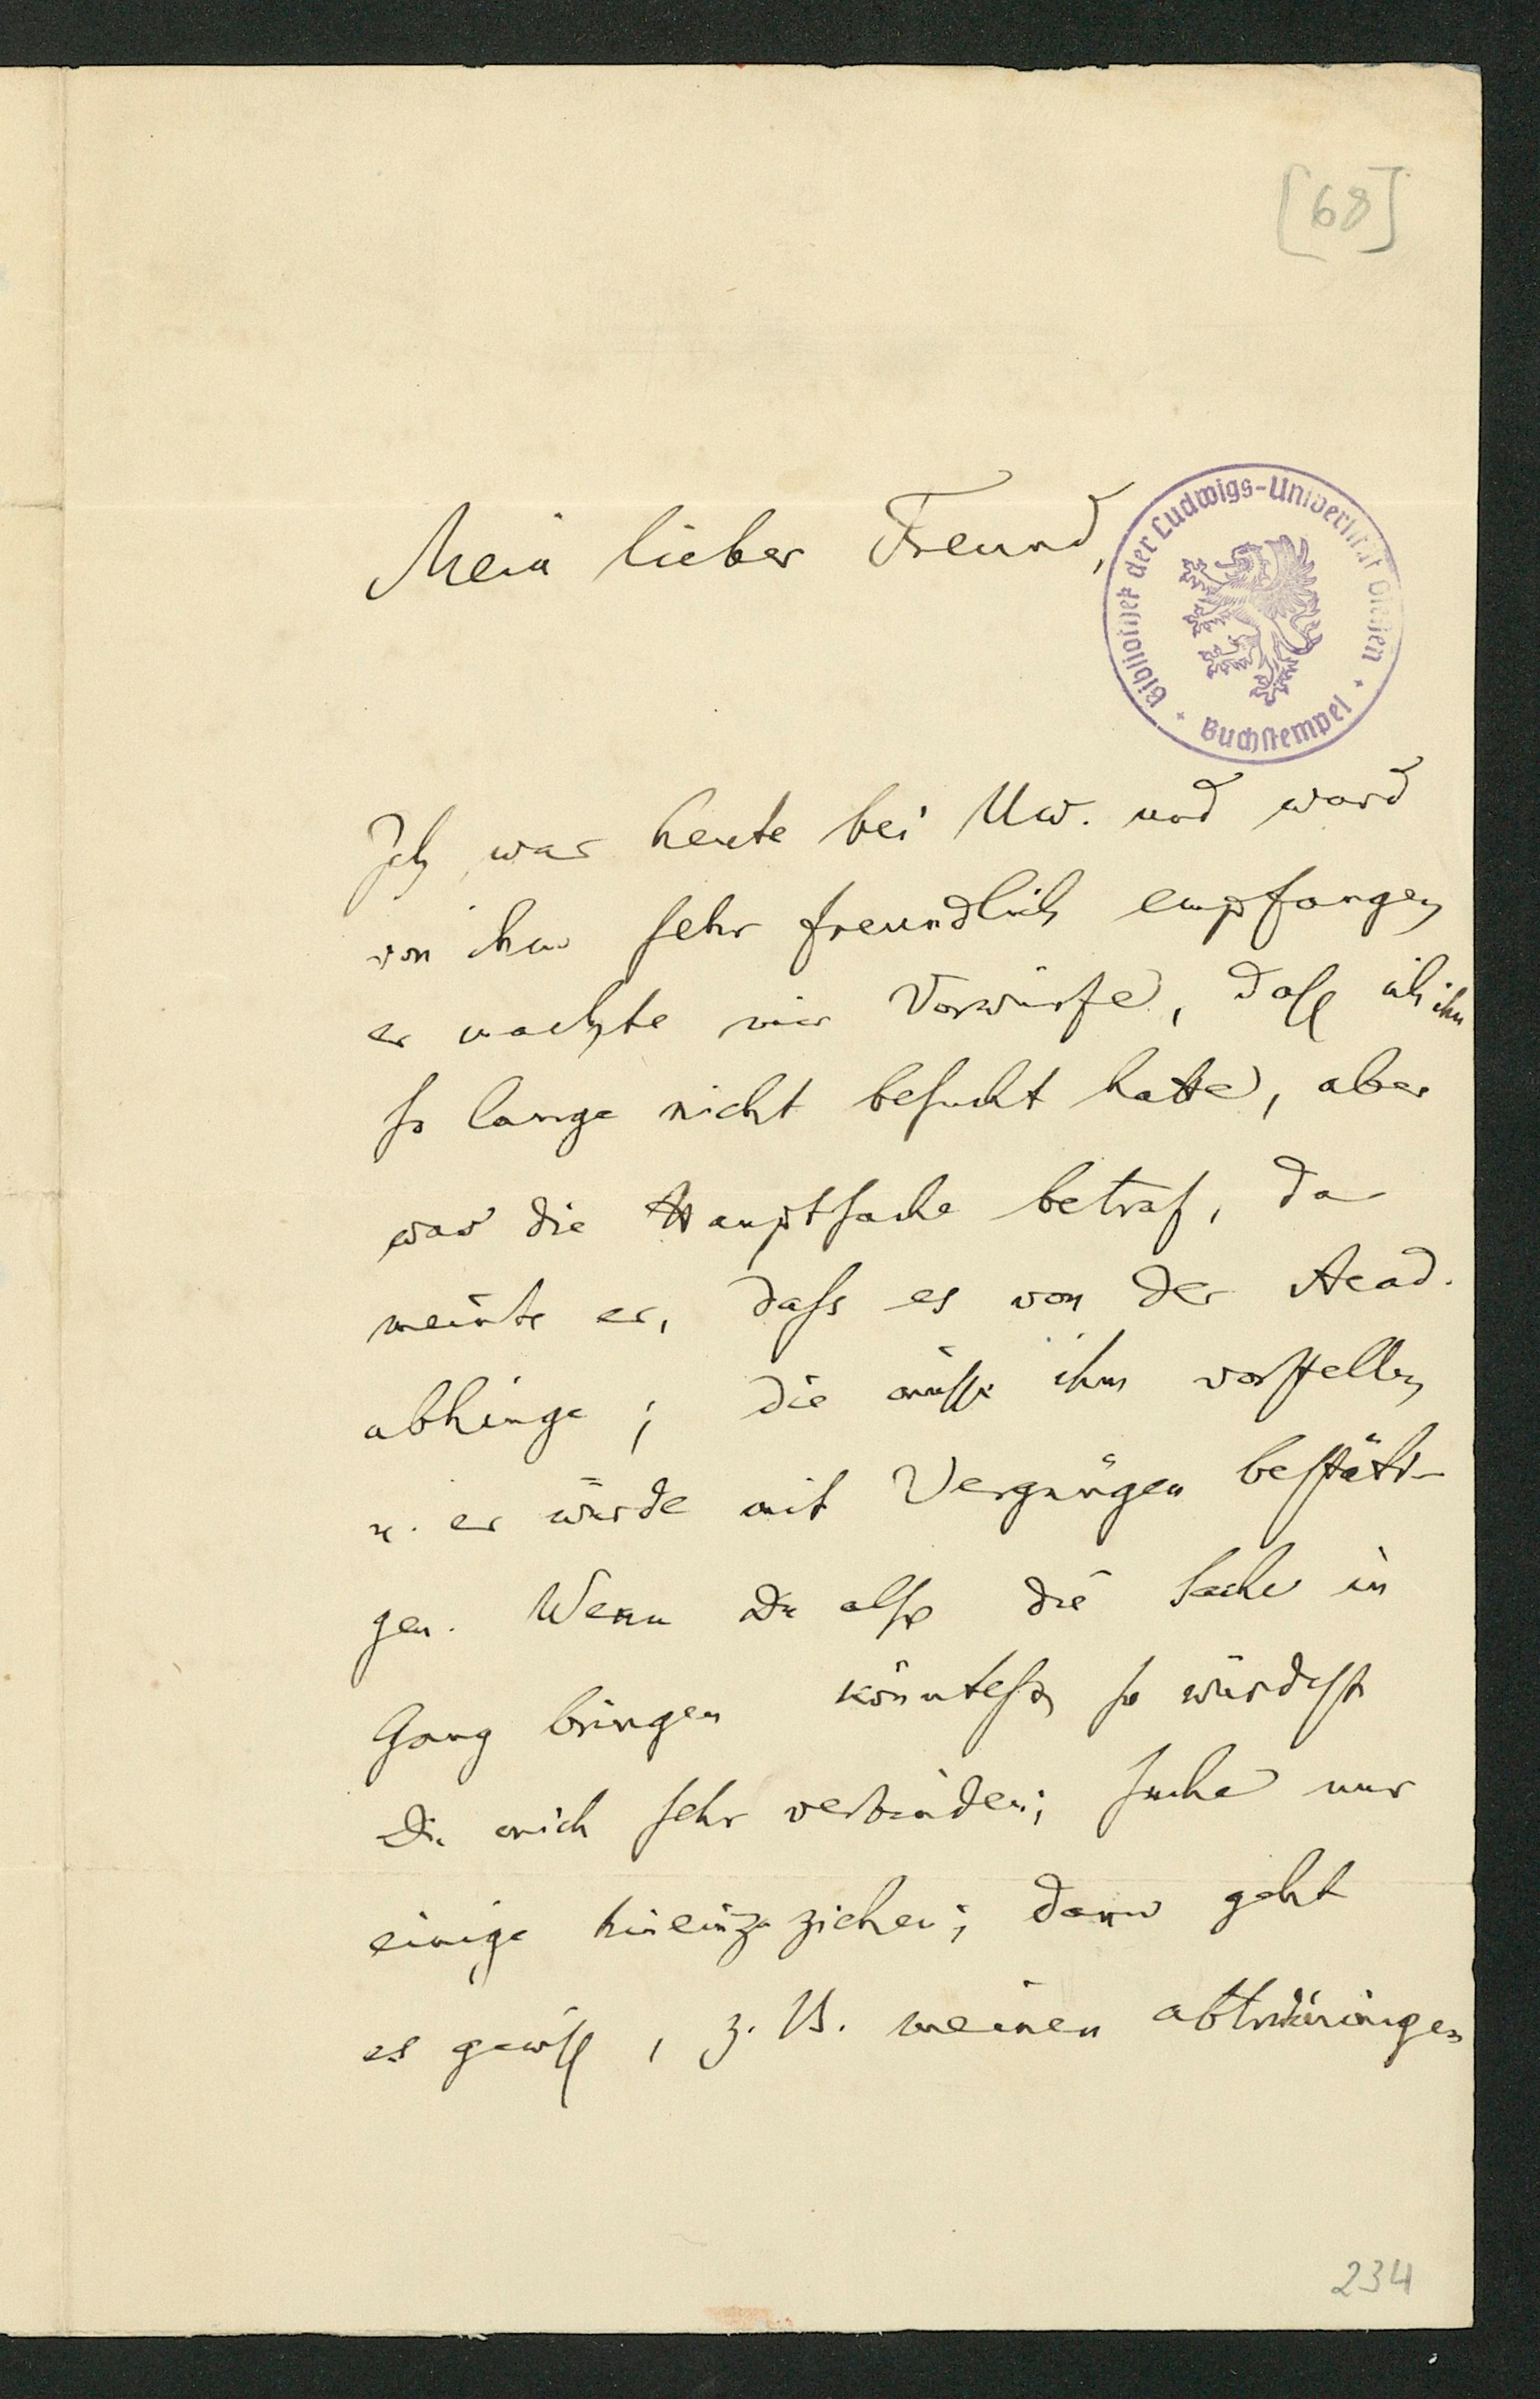 [68]
Mein lieber Freund,
Bibliothek der Ludwigs-Universität Gießen
Buchstempel
Ich war heute bei Uw. und ward
von ihm sehr freundlich empfangen
er machte mir Vorwürfe, daß ich ihn
so lange nicht besucht hatte, aber
was die Hauptsache betraf, da
meinte er, dass es von der Acad.
abhinge; die müsse ihm vorstellen
u. er würde mit Vergnügen bestäti-
gen. Wenn Du also die Sache in
Gang bringen könntest, so würdest
Du mich sehr verbinden; suche nur
einige hineinzuziehen; dann geht
es gewiß, z. B. meinen
234